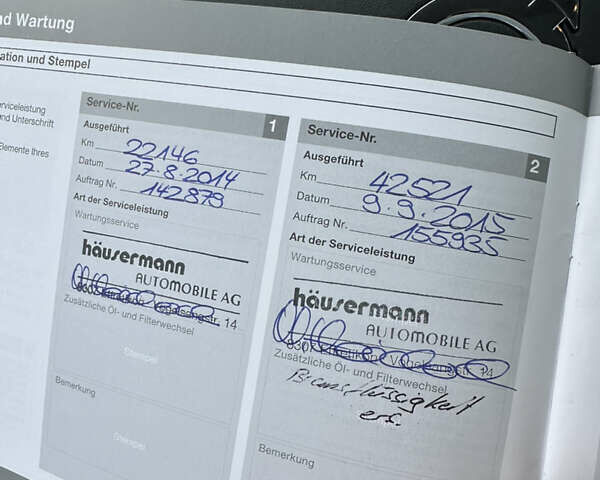 nd Wartung
ation und Stempel
rviceleistung
nd Unterschrift
Elemente Ihres
Service-Nr. 1
Ausgeführt
Km 22146
Datum 27.8.2014
Auftrag Nr. 142879
Art der Serviceleistung
Wartungsservice
häusermann
AUTOMOBILE AG
14
Zusätzliche Öl- und Filterwechsel
Stempel
Bemerkung
Stempel
Service-Nr. 2
Ausgeführt
Km 42521
Datum 9.9.2015
Auftrag Nr. 155935
Art der Serviceleistung
Wartungsservice
häusermann
AUTOMOBILE AG
14
Zusätzliche Öl- und Filterwechsel
Bremsflüssigkeit
ers.
Bemerkung